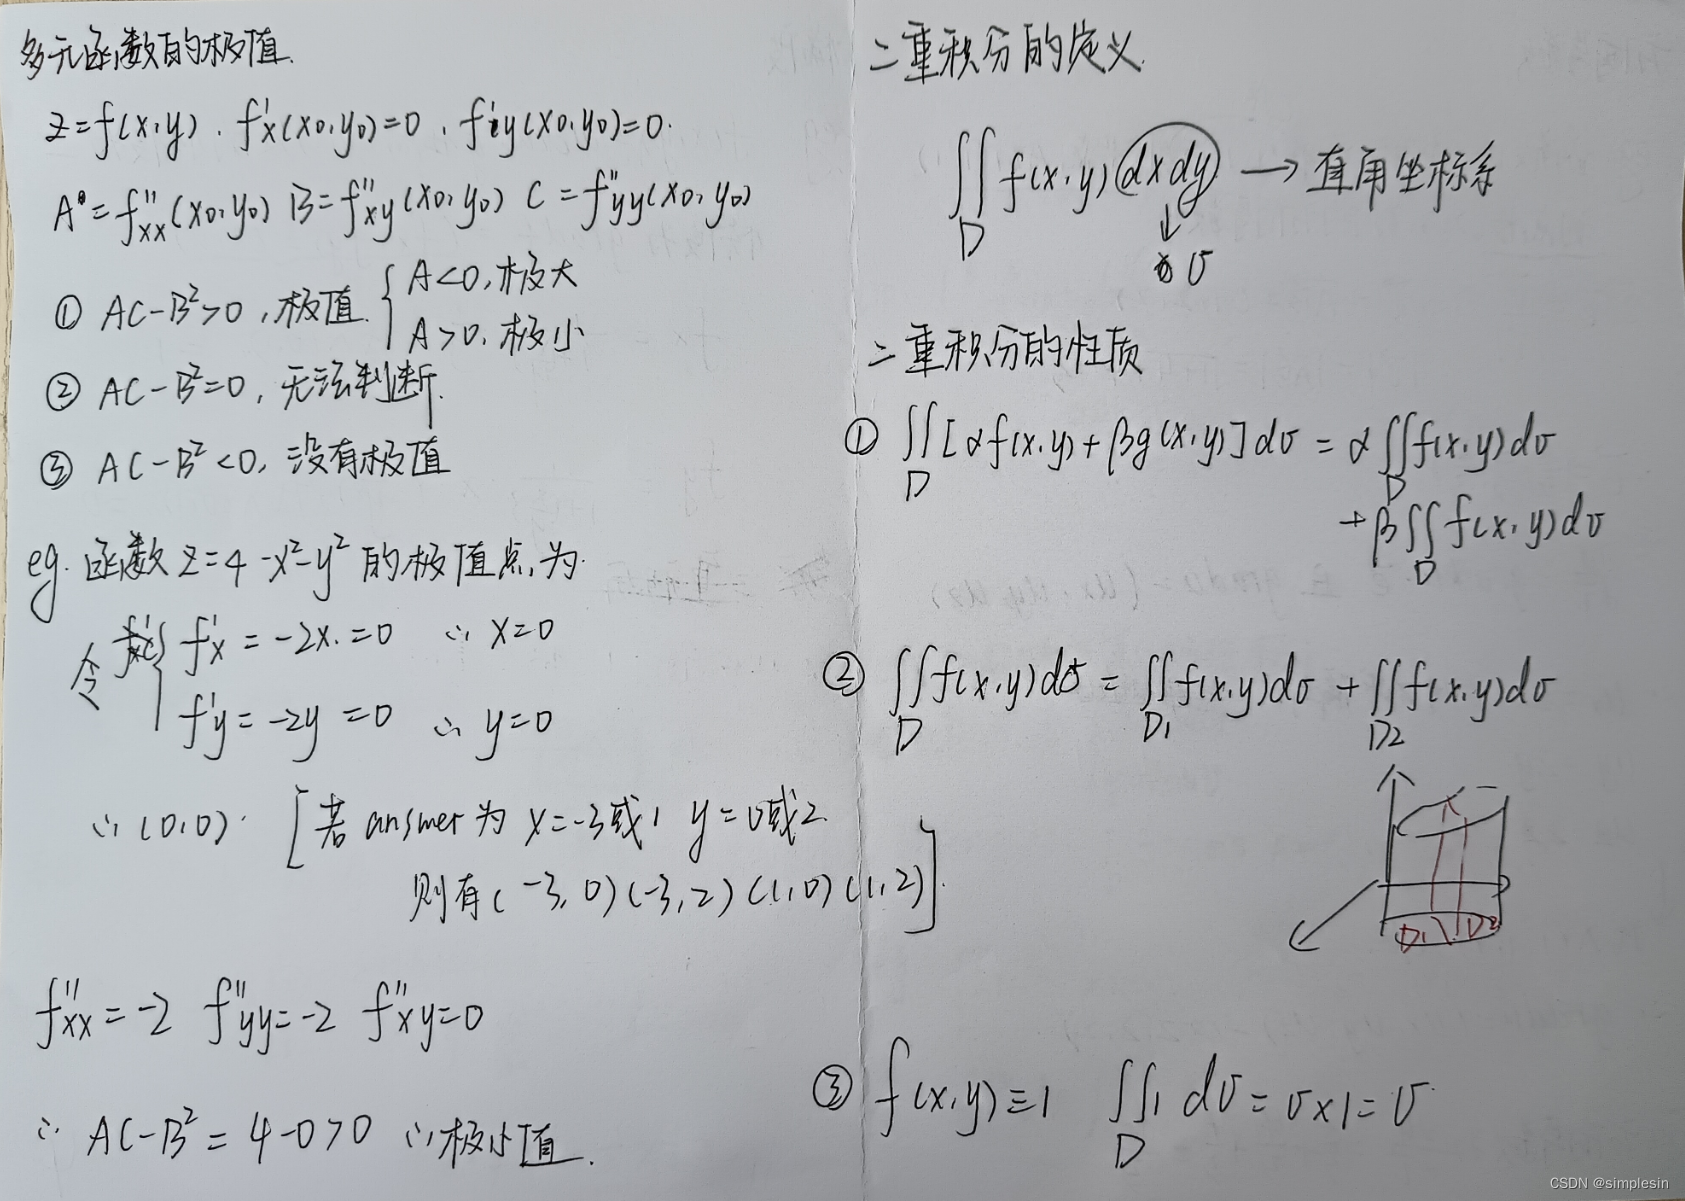 多元函数的极值.
z=f(x,y). f'x(x0,y0)=0, f'y(x0,y0)=0.
A=f''xx(x0,y0) B=f''xy(x0,y0) C=f''yy(x0,y0)
① AC-B²>0, 极值. { A<0, 极大
A>0, 极小
② AC-B²=0, 无法判断.
③ AC-B²<0, 没有极值
eg. 函数 z=4-x²-y² 的极值点为.
令 { f'x = -2x. =0 ∴ x=0
f'y = -2y =0 ∴ y=0
∴ (0,0). [若 answer 为 x=-3或1 y=0或2.
则有(-3,0)(-3,2)(1,0)(1,2)].
f''xx=-2 f''yy=-2 f''xy=0
∴ AC-B²=4-0>0 ∴极小值.
二重积分的定义.
∬ f(x,y) dxdy → 直角坐标系
D ↓
σ
二重积分的性质
① ∬ [αf(x,y)+βg(x,y)]dσ = α∬f(x,y)dσ
D D
+β∬f(x,y)dσ
D
② ∬f(x,y)dσ = ∬f(x,y)dσ + ∬f(x,y)dσ
D D1 D2
D1 D2
③ f(x,y)≡1 ∬1 dσ = σ×1=σ
D
CSDN @simplesin